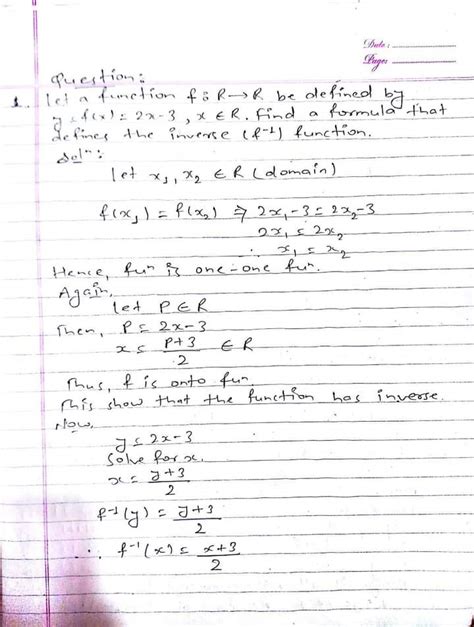 Date:
Page:
Question:
1. Let a function f: R→R be defined by
y = f(x) = 2x-3, x ∈ R. Find a formula that
defines the inverse (f⁻¹) function.
Solⁿ:
let x₁, x₂ ∈ R (domain)
f(x₁) = f(x₂) ⇒ 2x₁-3 = 2x₂-3
2x₁ = 2x₂
∴ x₁ = x₂
Hence, fuⁿ is one-one fuⁿ.
Again,
let P ∈ R
Then, P = 2x-3
x = (P+3)/2 ∈ R
Thus, f is onto fuⁿ
This show that the function has inverse.
Now,
y = 2x-3
Solve for x.
x = (y+3)/2
f⁻¹(y) = (y+3)/2
∴ f⁻¹(x) = (x+3)/2